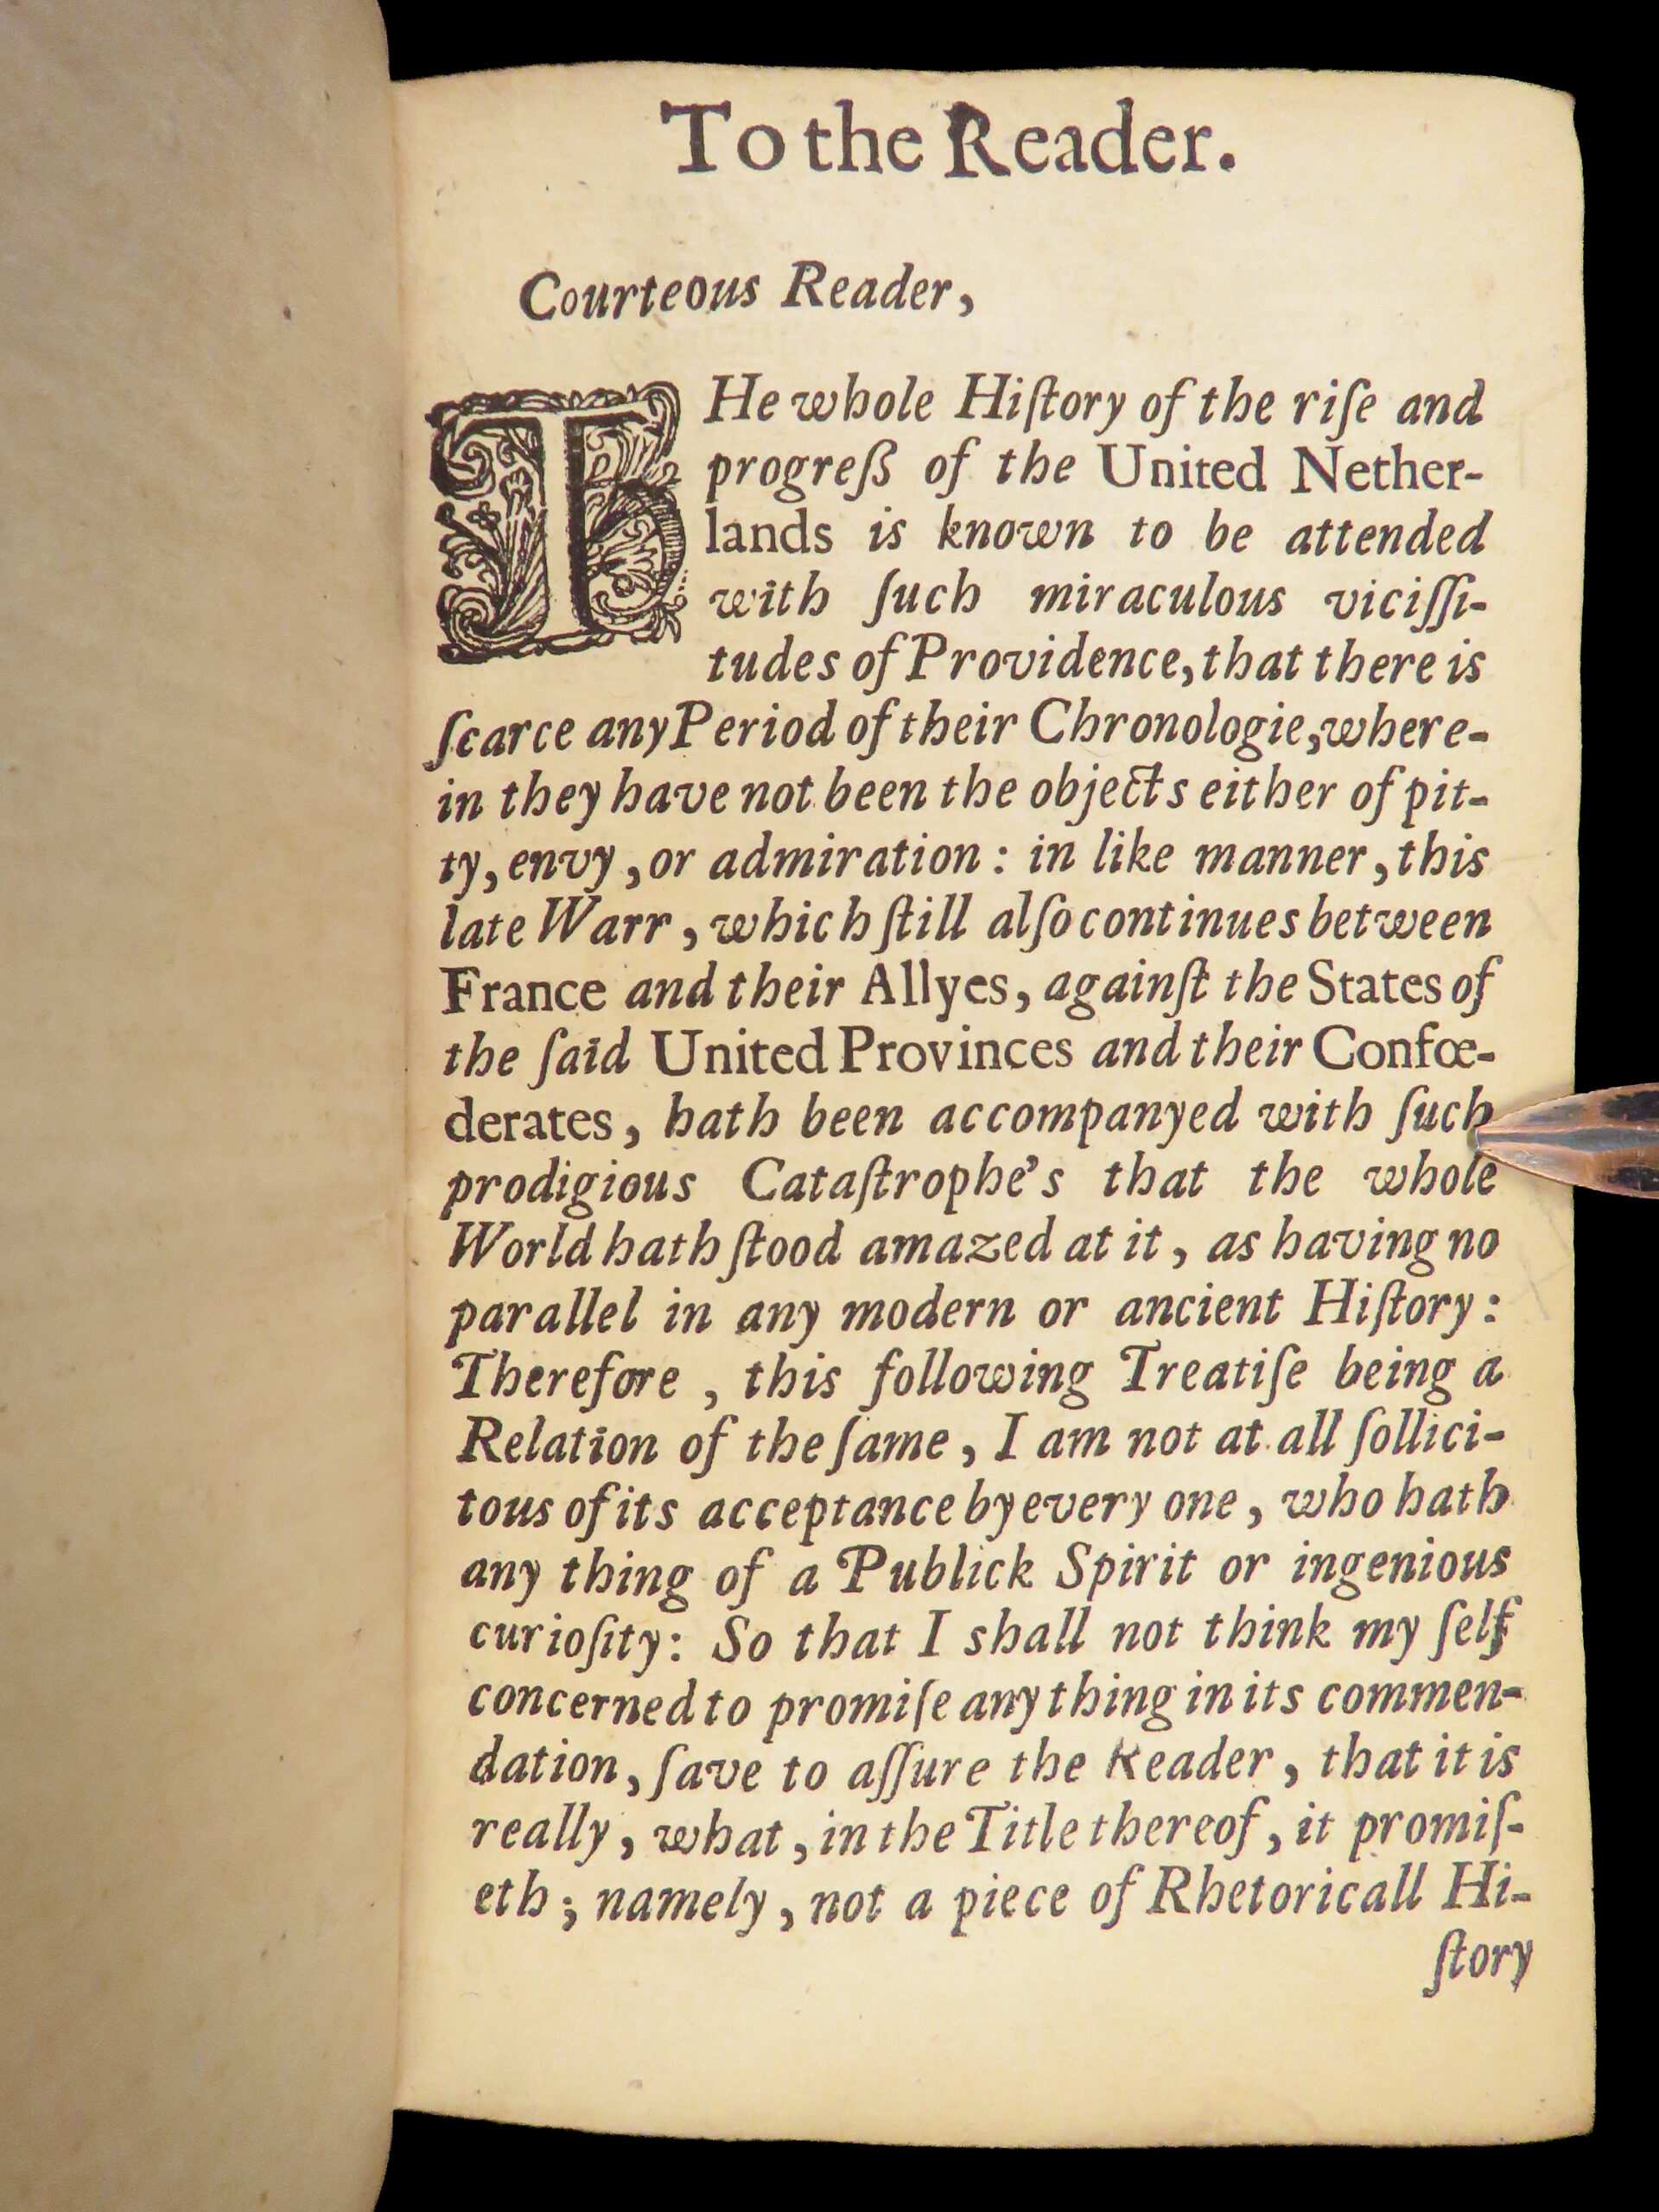 To the Reader.
Courteous Reader,
THe whole Hiſtory of the riſe and
progreß of the United Nether-
lands is known to be attended
with ſuch miraculous viciſſi-
tudes of Providence, that there is
ſcarce any Period of their Chronologie, where-
in they have not been the objects either of pit-
ty, envy, or admiration: in like manner, this
late Warr, which ſtill alſo continues between
France and their Allyes, againſt the States of
the ſaid United Provinces and their Confœ-
derates, hath been accompanyed with ſuch
prodigious Cataſtrophe's that the whole
World hath ſtood amazed at it, as having no
parallel in any modern or ancient Hiſtory:
Therefore, this following Treatiſe being a
Relation of the ſame, I am not at all ſollici-
tous of its acceptance by every one, who hath
any thing of a Publick Spirit or ingenious
curioſity: So that I shall not think my ſelf
concerned to promiſe any thing in its commen-
dation, ſave to aſſure the Reader, that it is
really, what, in the Title thereof, it promiſ-
eth; namely, not a piece of Rhetoricall Hi-
ſtory